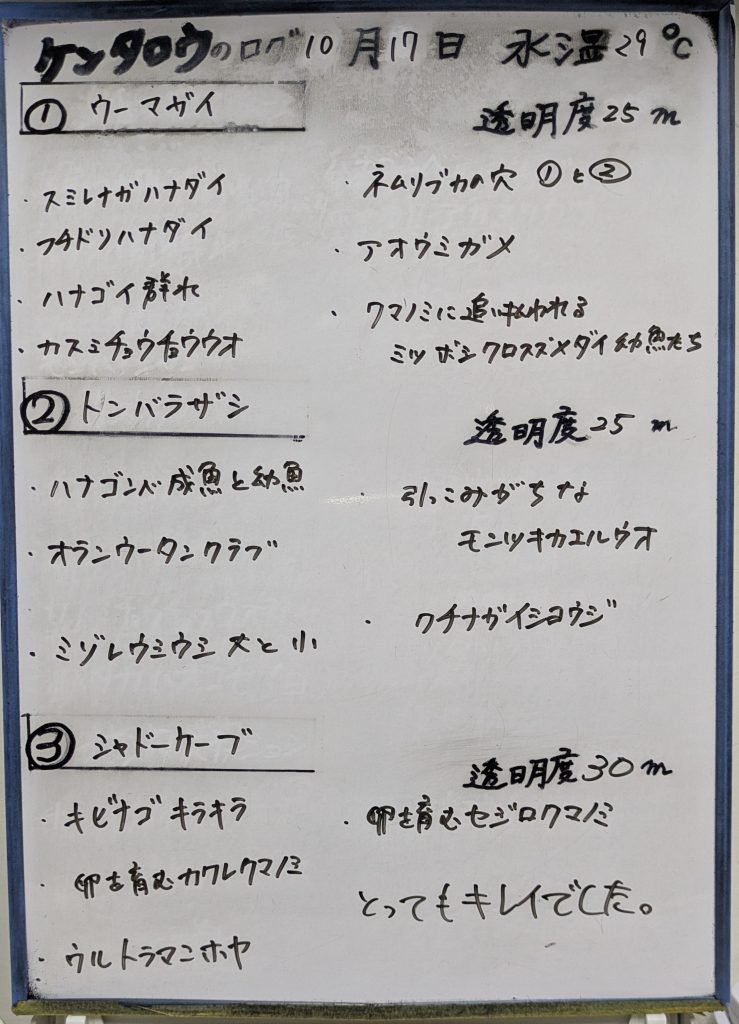 ケンタロウのログ 10月17日 水温29℃
① ウーマガイ
透明度25m
・スミレナガハナダイ
・フチドリハナダイ
・ハナゴイ群れ
・カスミチョウチョウウオ
・ネムリブカの穴 ①と②
・アオウミガメ
・クマノミに追い払われる
ミツボシクロスズメダイ幼魚たち
② トンバラザシ
透明度25m
・ハナゴンベ成魚と幼魚
・オランウータンクラブ
・ミゾレウミウシ大と小
・引っこみがちな
モンツキカエルウオ
・クチナガイシヨウジ
③ シャドーケーブ
透明度30m
・キビナゴキラキラ
・卵を育むカクレクマノミ
・ウルトラマンホヤ
・卵を育むセジロクマノミ
とってもキレイでした。